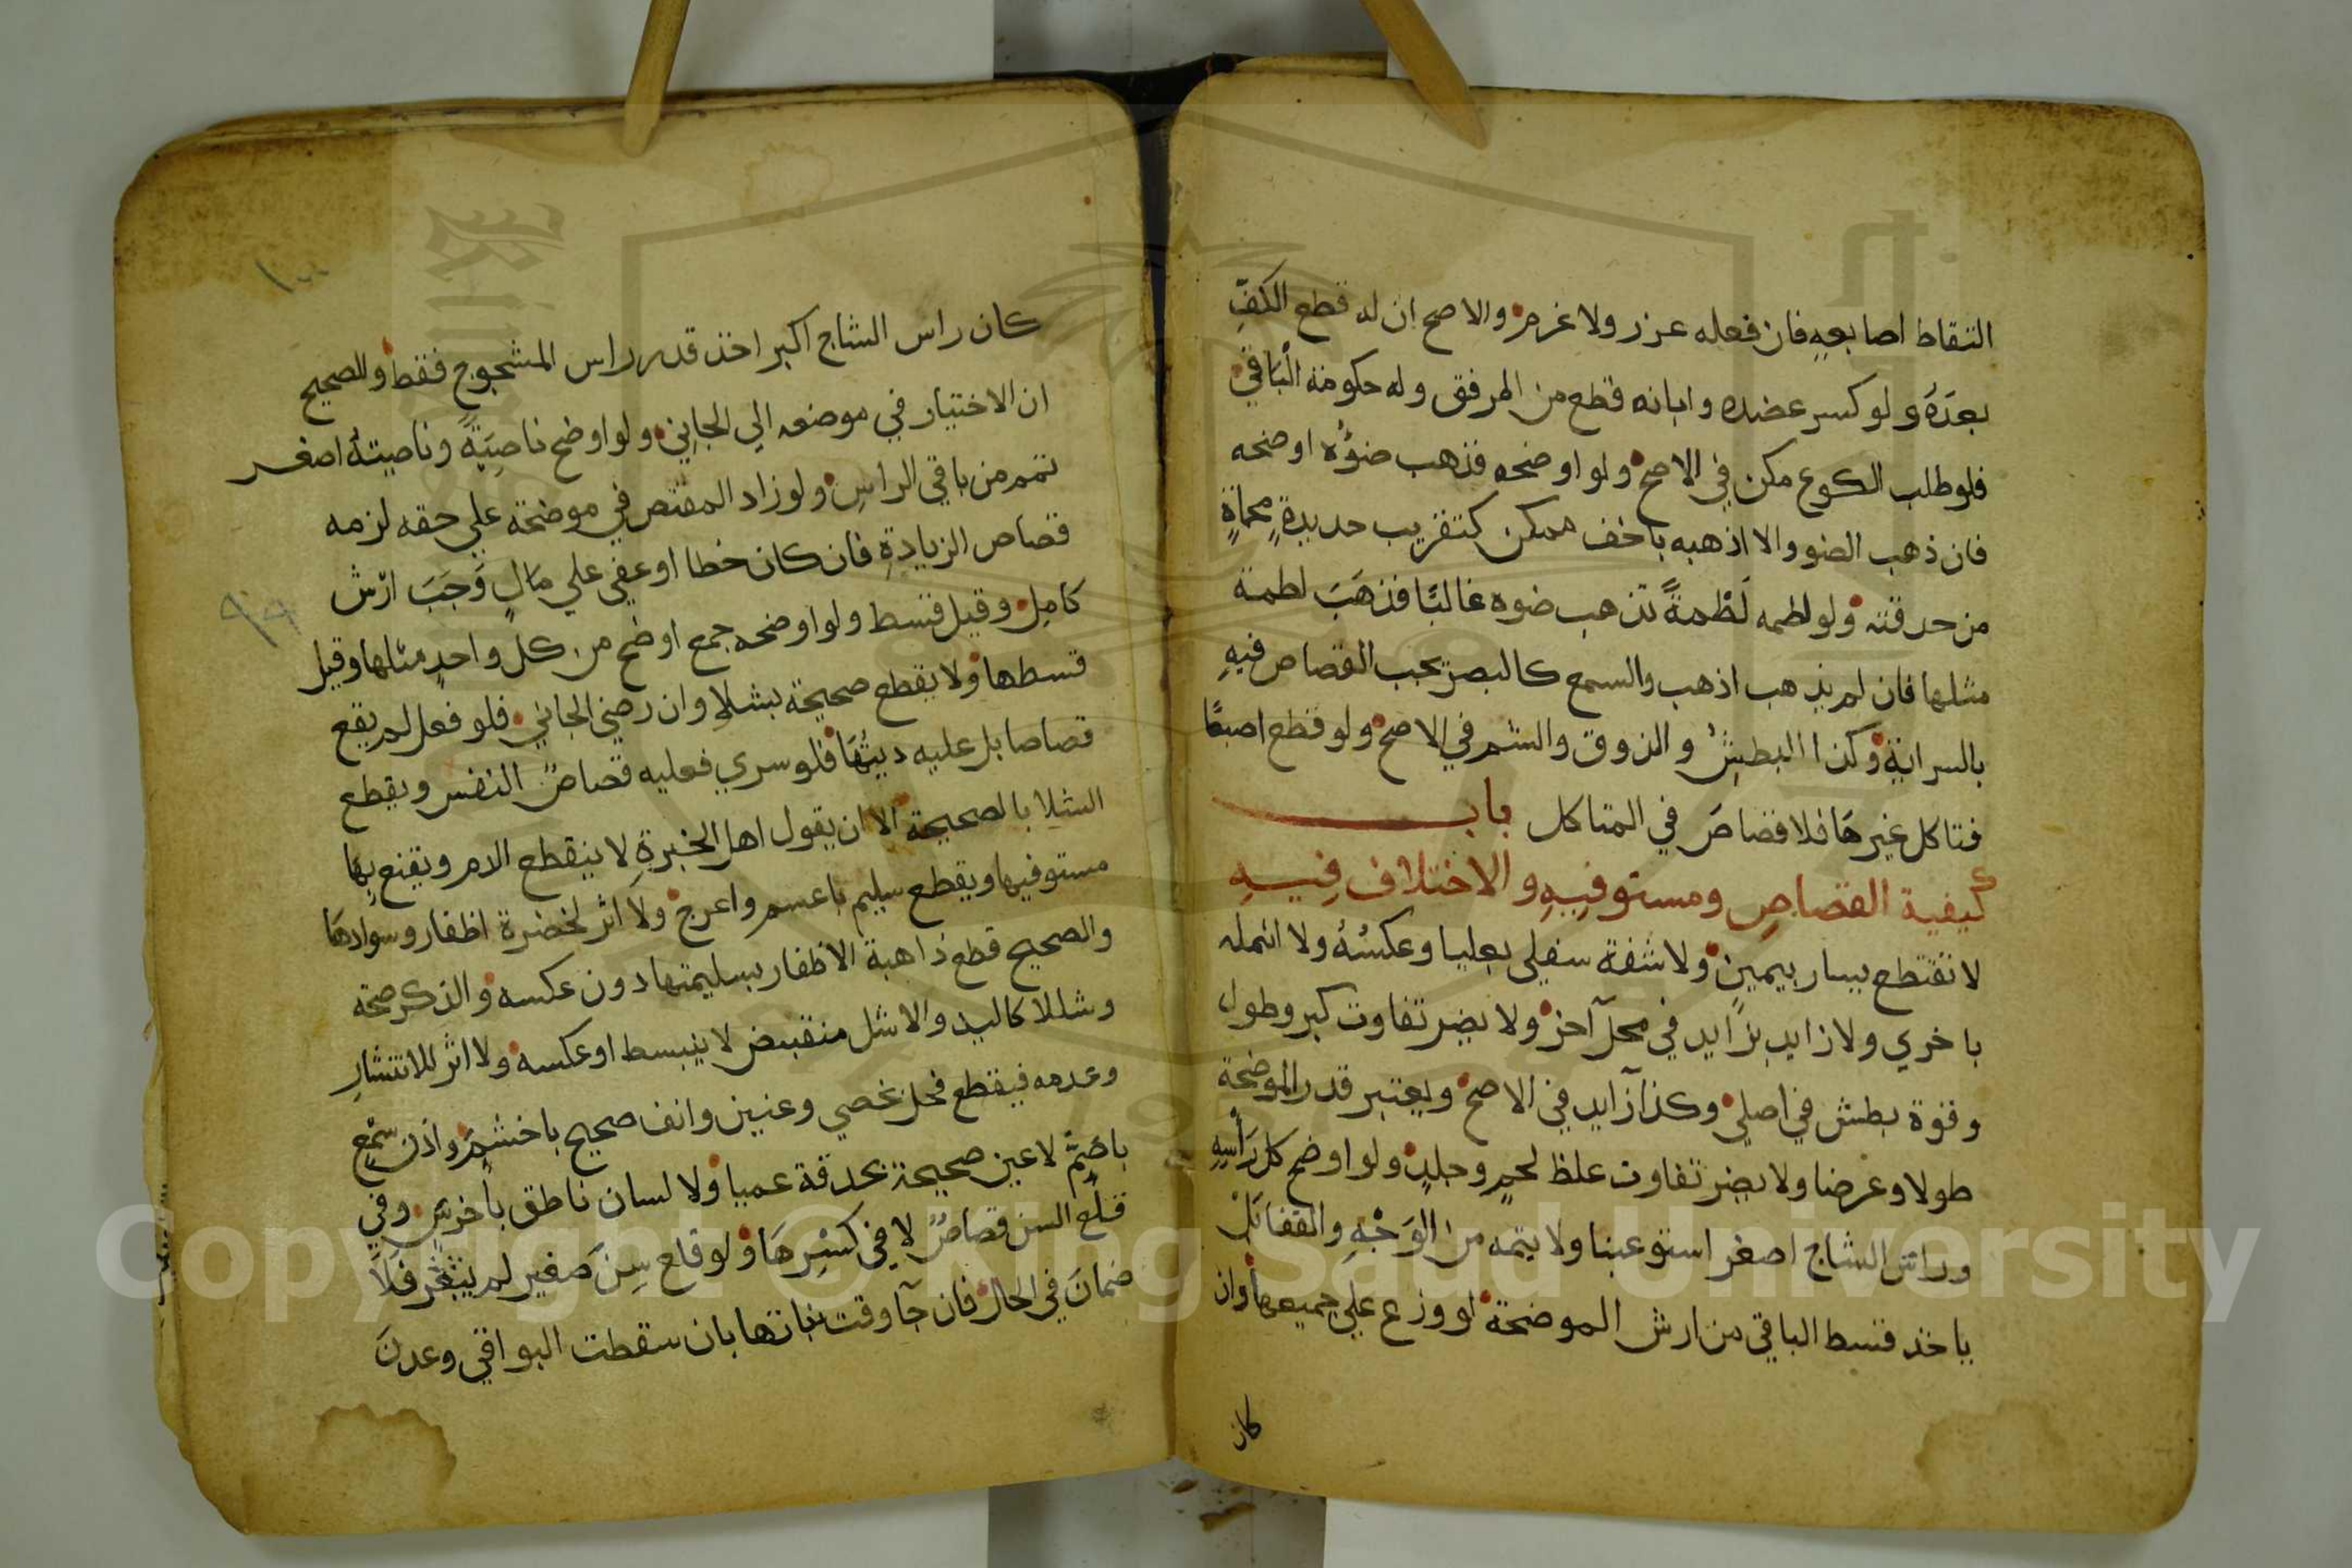 التقاط اصابعه فان فعله عزر ولا غرم والاصح ان له قطع الكفِّ
بعدَهُ ولو كسر عضده وابانه قطع من المرفق وله حكومة الْبَاقي
فلو طلب الكوع مكن في الاصح ولو اوضحه فذهب ضؤُه اوضحه
فان ذهب الضو والا اذهبه باخف ممكن كتقريب حديدةٍ محماةٍ
من حدقته ولو لطمه لَطْمةً تذهب ضوه غالبًا فذهَبَ لطمه
مثلها فان لم يذهب اذهب والسمع كالبصر يجب القصاص فيهِ
بالسراية وكذا البطش والذوق والشم في الاصح ولو قطع اصبعًا
فتاكل غيرهَا فلا قصاصَ في المتاكل باب
كيفية القصاصِ ومستوفِيهِ والاختلاف فِيهِ
لا تقتطع يسار بيمين ولا شفة سفلي بعليا وعكسُهُ ولا انمله
باخري ولا زايد بزايد في محل آخر ولا يضر تفاوت كبر وطول
وقوة بطش في اصلي وكذا زايد في الاصح ويعتبر قدر الموضحة
طولا وعرضا ولا يضر تفاوت غلظ لحمٍ وجلدٍ ولو اوضح كل رَأسِهِ
وراس الشاج اصغر استوعبنا ولا يتمه من الوَجْهِ والقفا بَلْ
ياخذ قسط الباقي من ارش الموضحة لو وزع علي جميعها وان
كان
١٠٠
كان راس الشاج اكبر اخذ قدر راس المشجوج فقط والصحيح
ان الاختيار في موضعه الي الجاني ولو اوضح ناصِيَةً وناصيتهُ اصغر
تمم من باقي الراسِ ولو زاد المقتص في موضحة علي حقه لزمه
قصاص الزيادةِ فان كان خطا او عفي علي مَالٍ وَجَبَ ارْش
كامِل وقيل قسط ولو اوضحه جمع اوضح من كل واحدٍ مثلها وقيل
٩٩
قسطها ولا يقطع صحيحة بشلا وان رضي الجاني فلو فعل لم يقع
قصاصا بل عليه ديتُهَا فلو سري فعليه قصاصُ النفس ويقطع
الشلا بالصحيحة الا ان يقول اهل الخبرةِ لا ينقطع الدم ويقنع بِهَا
مستوفيها ويقطع سليم باعسم واعرج ولا اثر لخضرة اظفار وسوادهَا
والصحيح قطع ذاهبة الاظفار بسليمتها دون عكسه والذكر صحة
وشللا كاليد والاشل منقبض لا ينبسط او عكسه ولا اثر للانتشارِ
وعدمه فيقطع فحل بخصي وعنين وانف صحيح باخشم واذن سمْعٍ
باصَمّ لا عين صحيحة بحدقة عميا ولا لسان ناطق بأخرَسَ وفي
قلْع السن قصاصٌ لا في كسْرِهَا ولو قلع سِنَ صغير لم يثغر فلَا
ضمانَ في الحال فان جآ وقت نباتها بان سقطت البواقي وعدنَ